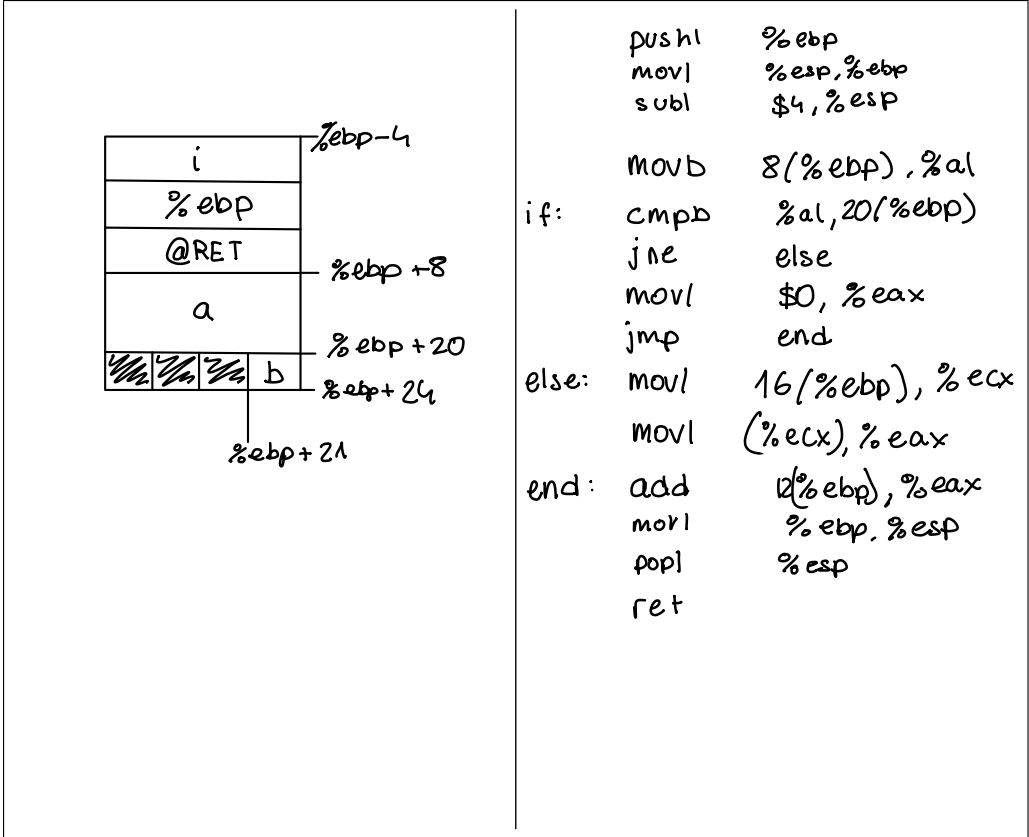 %ebp-4
i
%ebp
@RET
%ebp+8
a
%ebp+20
b
%ebp+24
%ebp+21
pushl %ebp
movl %esp,%ebp
subl $4,%esp
movb 8(%ebp),%al
if: cmpb %al,20(%ebp)
jne else
movl $0, %eax
jmp end
else: movl 16(%ebp), %ecx
movl (%ecx),%eax
end: add 12(%ebp),%eax
movl %ebp,%esp
popl %esp
ret